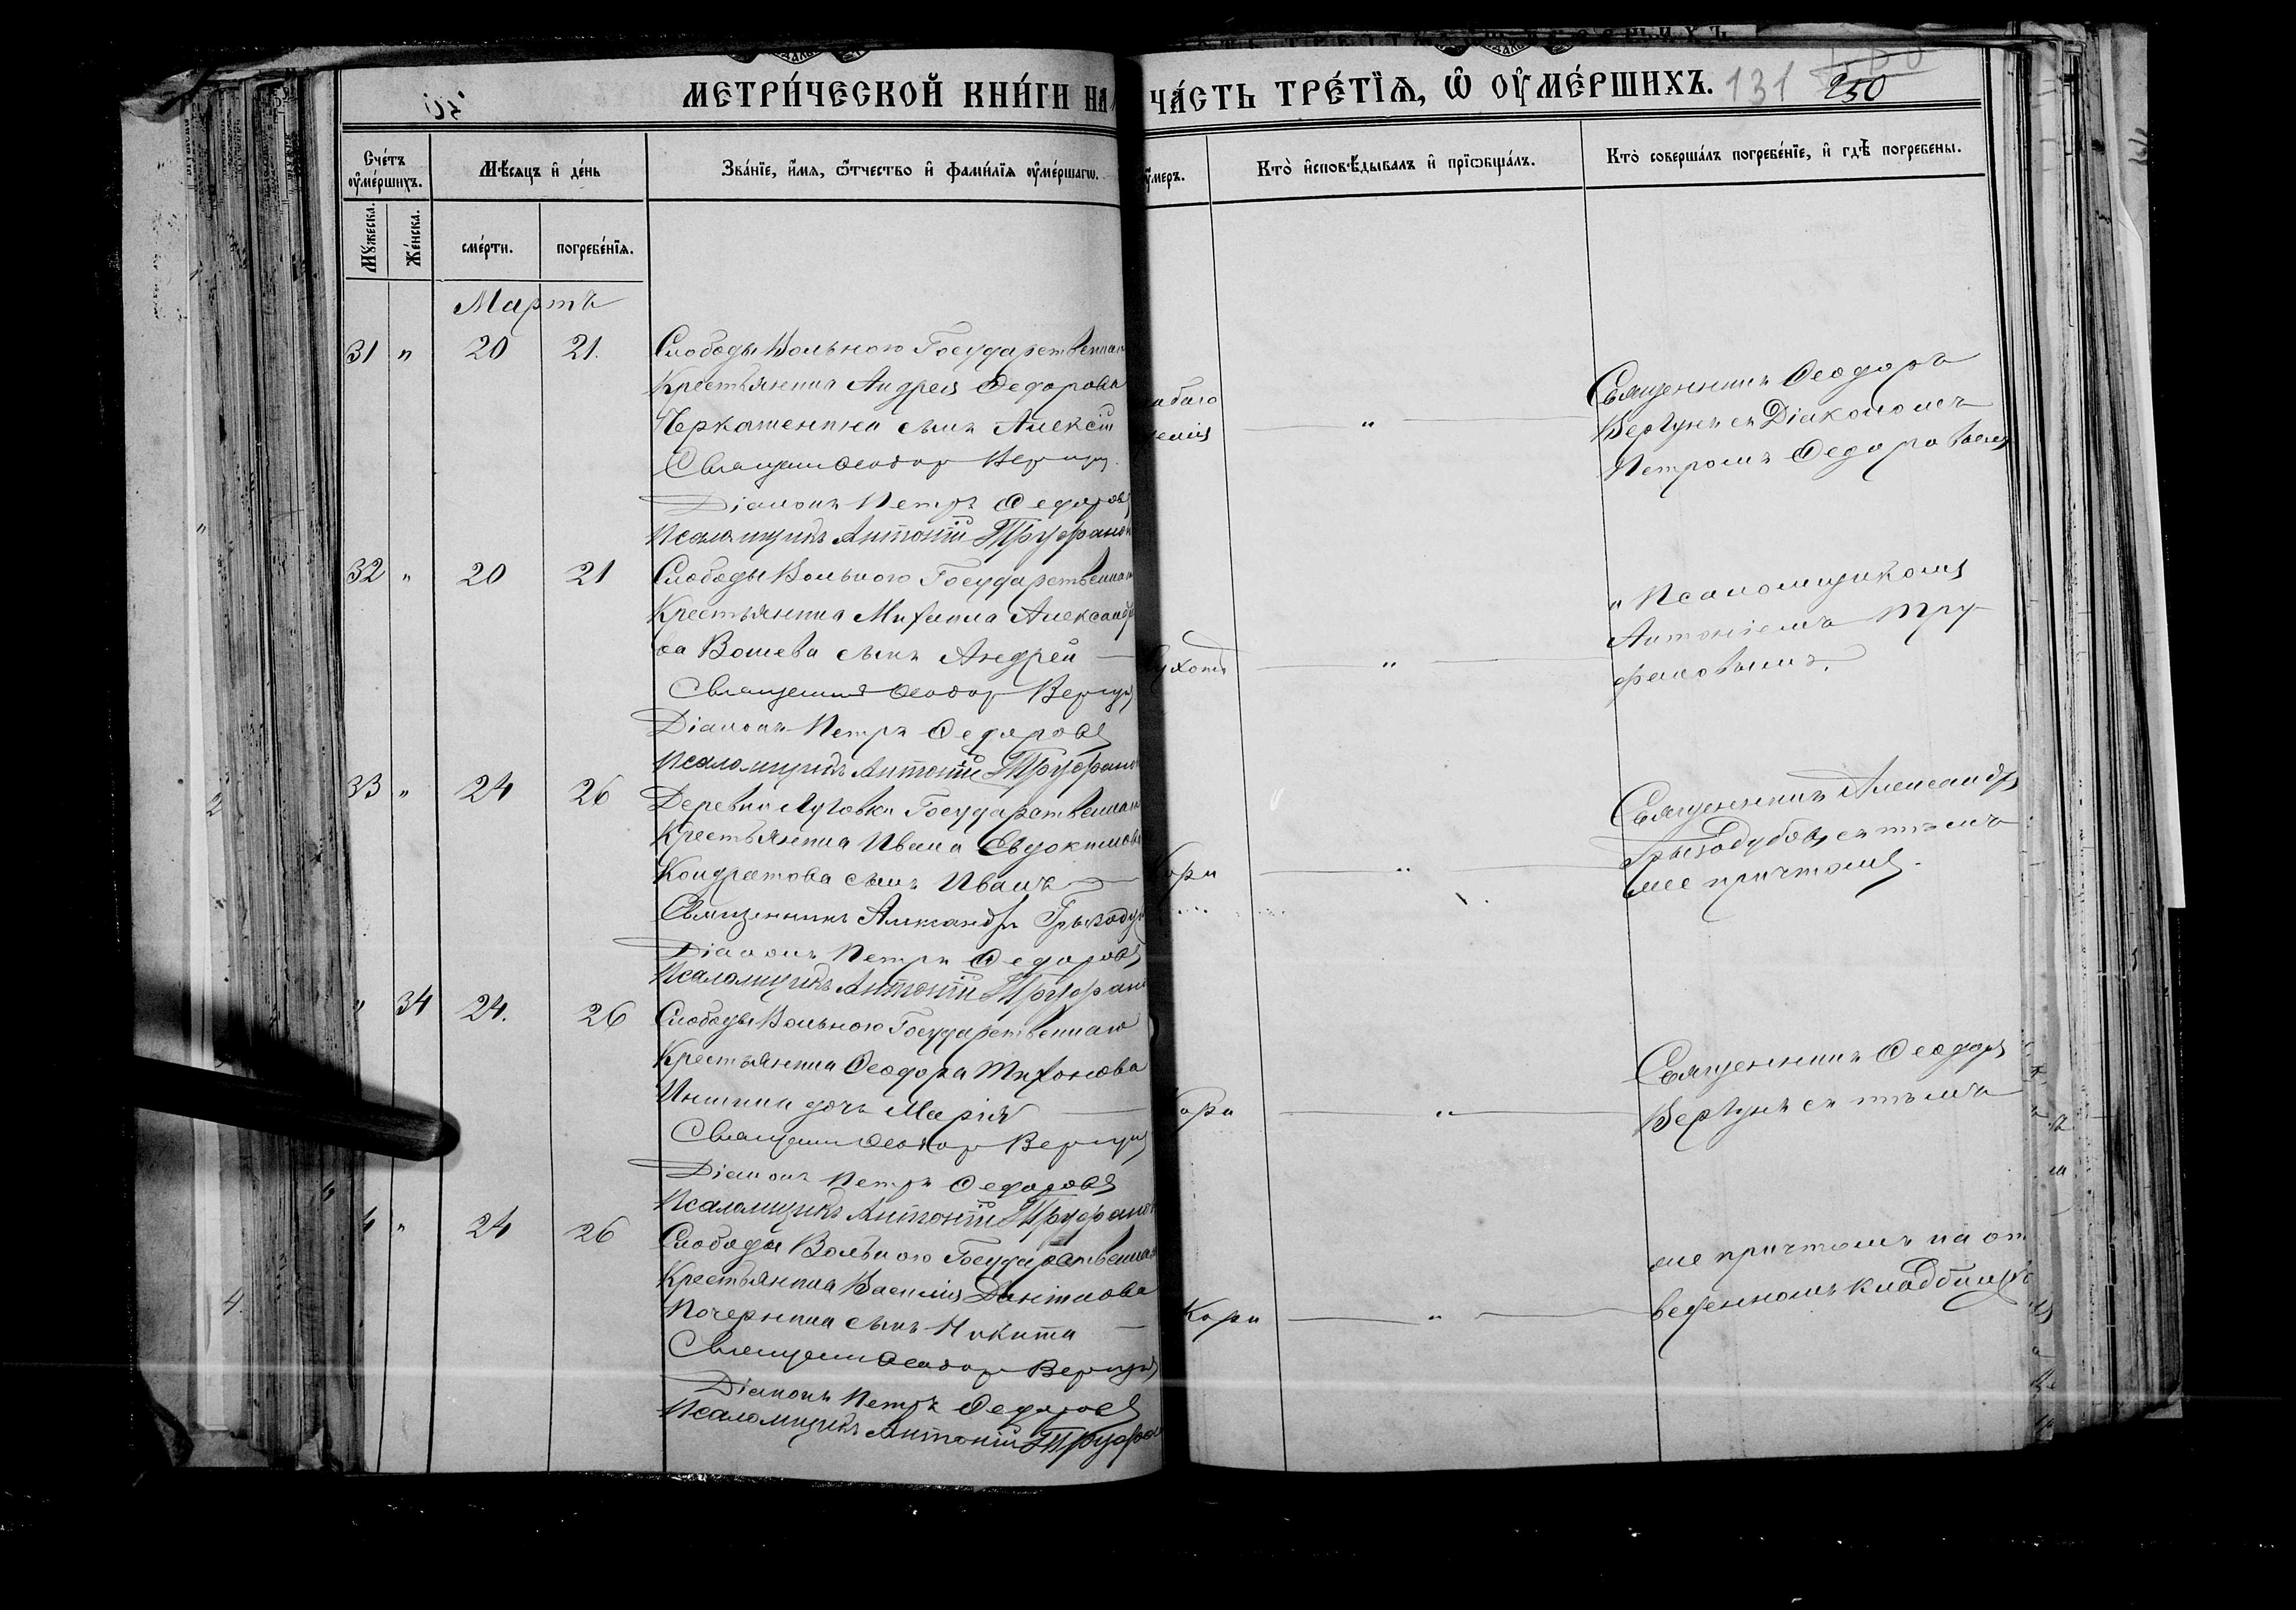 МЕТРИ́ЧЕСКОЙ КНИ́ГИ НА
ЧА́СТЬ ТРЕ́ТЇѦ, Ѡ ОУМЕ́РШИХЪ. 131 250
Сче́тъ оуме́ршихъ.
Мѣ́сяцъ и де́нь
Зва́нїе, и́мя, ѻ́тчество и фами́лїя оуме́ршагѡ.
оумеръ.
Кто̀ исповѣ́дывалъ и прїѻбща́лъ.
Кто̀ соверша́лъ погребе́нїе, и гдѣ̀ погребены.
Мꙋжеска.
Же́нска.
сме́рти.
погребе́нїя.
Мартъ
31 " 20 21. Слободы Вольного Государственнаго
Крестьянина Андрея Федорова
Черкашенина сынъ Алексій
Священ Феодор Вергун
Діаконъ Петръ Федоровъ
Псаломщикъ Антоній Труфанов
"
Священникъ Феодоръ
Вергунъ съ Діакономъ
Петромъ Федоровымъ
32 " 20 21 Слободы Вольного Государственнаго
Крестьянина Михаила Александро
ва Вошева сынъ Андрей
Священник Феодор Вергун
Діаконъ Петръ Федоровъ
Псаломщикъ Антоній Труфанов
"
и Псаломщикомъ
Антоніемъ Тру-
фановымъ.
33 " 24 26 Деревни Луговки Государственнаго
Крестьянина Ивана Евдокимова
Кондратова сынъ Иванъ
Священникъ Александръ Грызодуб
Діаконъ Петръ Федоровъ
Псаломщикъ Антоній Труфанов
Кори "
Священникъ Александръ
Грызодубовъ съ тѣмъ
же причтомъ.
" 34 24. 26 Слободы Вольного Государственнаго
Крестьянина Феодора Тихонова
дочь Марія
Священ Феодор Вергун
Діаконъ Петръ Федоровъ
Псаломщикъ Антоній Труфанов
Кори "
Священникъ Феодоръ
Вергунъ съ тѣмъ
4 " 24 26 Слободы Вольного Государственнаго
Крестьянина Василія Данилова
Почернина сынъ Никита
Священ Феодор Вергун
Діаконъ Петръ Федоровъ
Псаломщикъ Антоній Труфанов
Кори "
же причтомъ на от
веденномъ кладбищѣ